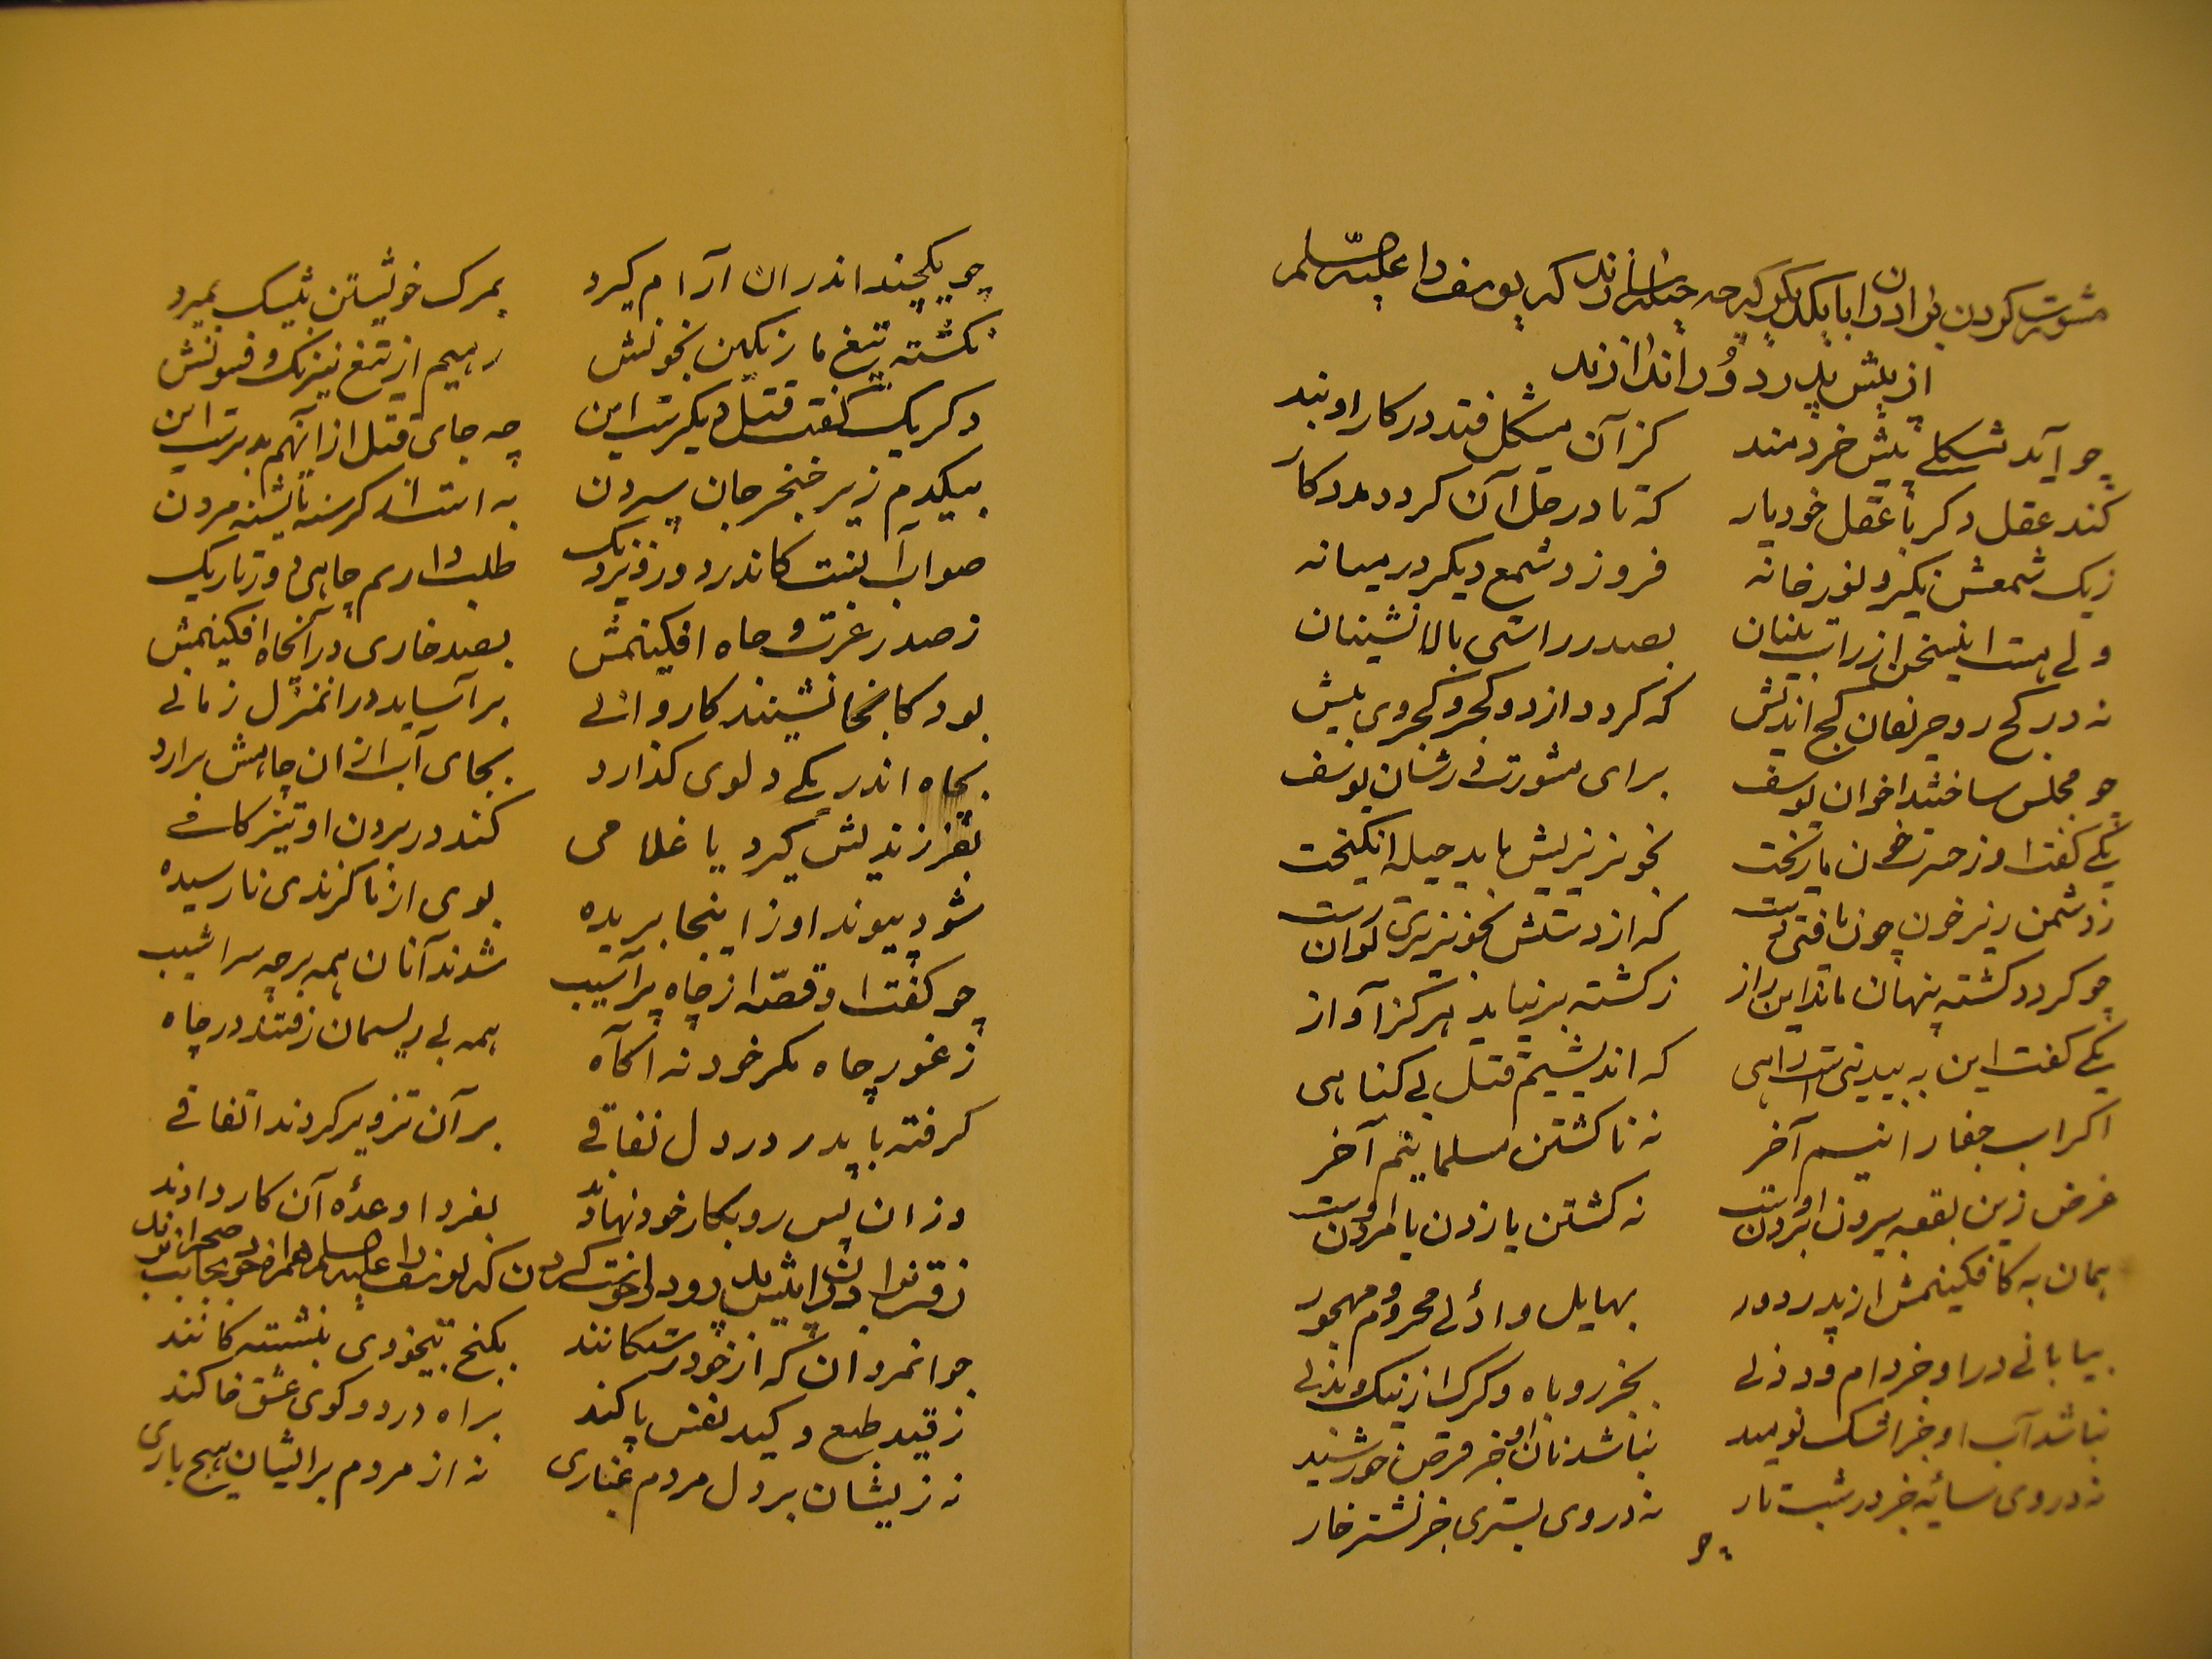 مشورت کردن برادران با یکدیگر که چه حیله سازند که یوسف را علیه السلام
از پیش پدر دور اندازند
چو آید مشکلی پیش خردمند کز آن مشکل فتد در کار او بند
کند عقل دکر با عقل خود یار که تا در حل آن کردد مددکار
ز یک شمعش نکیرد نور خانه فروزد شمع دیکر در میانه
ولی هست این سخن از راست بینان بصدر راستی بالا نشینان
نه در کج رو حریفان کج اندیش که کردد از دو کجرو کجروی بیش
چو مجلس ساختند اخوان یوسف برای مشورت در شان یوسف
یکی کفت او ز حسرت خون ما ریخت بخونریزیش باید حیله انکیخت
ز دشمن ریز خون چون یافتی دست که از دستش بخونریزی توان رست
چو کردد کشته پنهان ماند این راز ز کشته برنیاید هرکز آواز
یکی کفت این به بیدینی است راهی که اندیشیم قتل بی کناهی
اکر اسب جفا رانیم آخر نه نا کشتن مسلمانیم آخر
غرض زین بقعه بیرون بردن اوست نه کشتن یا زدن یا مردن اوست
همان به کافکنیمش از پدر دور بهایل وادئی محروم و مهجور
بیابانی در او جز دام و دد نی بجز روباه و کرک از نیک و بد نی
نباشد آب او جز اشک نومید نباشد نان او جز قرص خورشید
نه در وی سایهٔ جز در شب تار نه در وی بستری جز نشتر خار
چو
چو یکچند اندران آرام کیرد بمرک خویشتن بیشک بمیرد
نکشته تیغ ما رنکین بخونش رهیم از تیغ نیرنک و فسونش
دکر یک کفت قتل دیکرست این چه جای قتل از آنهم بدترست این
بیکدم زیر خنجر جان سپردن به است از کرسنه یا تشنه مردن
صواب آنست کاندر دور و نزدیک طلب داریم چاهی دور و تاریک
ز صدر عزت و جاه افکنیمش بصد خواری در آنچاه افکنیمش
بود کانجا نشیند کاروانی برآساید در انمنزل زمانی
بچاه اندر یکی دلوی کذارد بجای آب ازان چاهش برارد
بفرزندیش کیرد یا غلامی کند در بردن او تیز کامی
شود پیوند او ز اینجا بریده بوی از ما کزندی نارسیده
چو کفت او قصه از چاه پر آسیب شدند آنان همه بر چه سراشیب
ز غور چاه مکر خود نه آکاه همه بی ریسمان رفتند در چاه
کرفته با پدر در دل نفاقی بر آن تزویر کردند اتفاقی
وزان پس رو بکار خود نهادند بفردا وعدهٔ آن کار دادند
رفتن برادران پیش پدر و درخواست کردن که یوسف را علیه السلام همراه خود بجانب صحرا برند
جوانمردان که از خود رستکانند بکنج بیخودی بنشستکانند
ز قید طبع و کید نفس پاکند براه درد و کوی عشق خاکند
نه زیشان بر دل مردم غباری نه از مردم برایشان هیچ باری